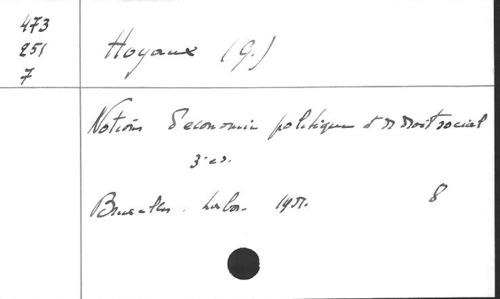 473
251
7
Hoyaux (G.)
Notions d'economie politique et de droit social
3e ed.
Bruxelles. 195.
8